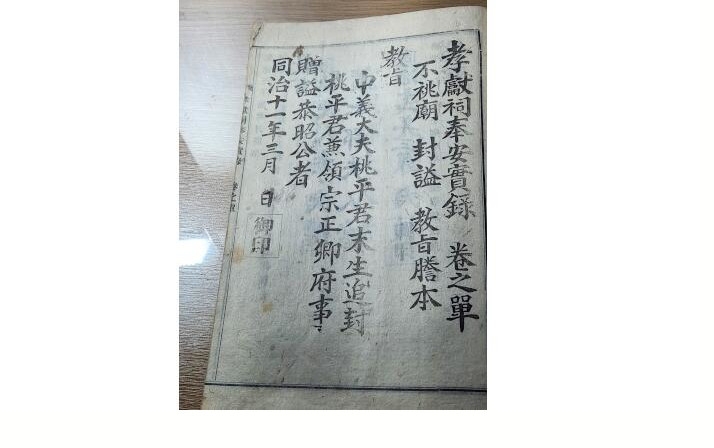 孝獻祠奉安實錄 卷之單
不祧廟 封謚 教旨謄本
教旨
中義大夫桃平君末生追封
桃平君兼領宗正卿府事
贈謚恭昭公者
同治十一年三月 日 御印